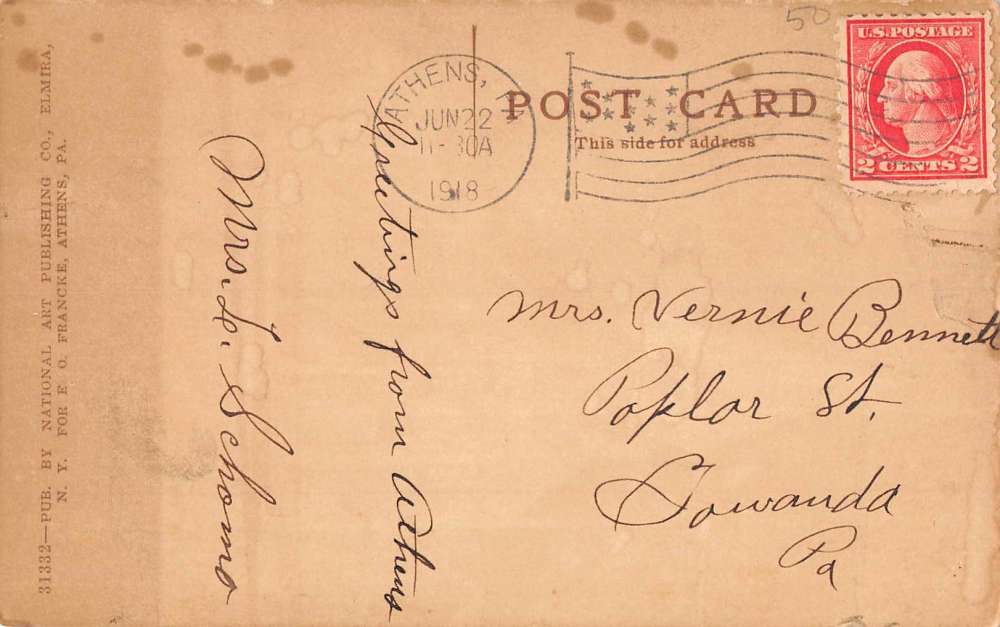 50
U.S. POSTAGE
2 CENTS 2
ATHENS, PA
JUN 22
11-30A
1918
POST CARD
This side for address
Greetings from Athens
Mrs. L. Schomo
Mrs. Vernie Bennett
Poplar St.
Towanda
Pa
31332—PUB. BY NATIONAL ART PUBLISHING CO., ELMIRA,
N. Y. FOR E O. FRANCKE, ATHENS, PA.